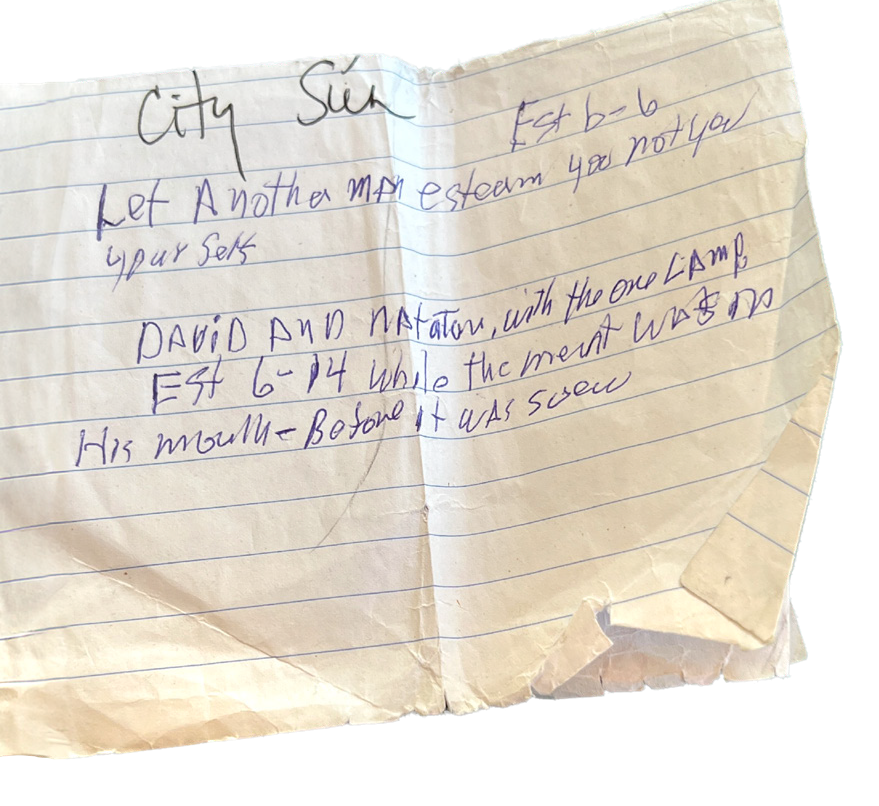 City
Est 6-6
Let Another man esteam you not you
your self
DAVID AND NATATON, with the one LAMB
Est 6-14 while the meat was in
His mouth - Before it was